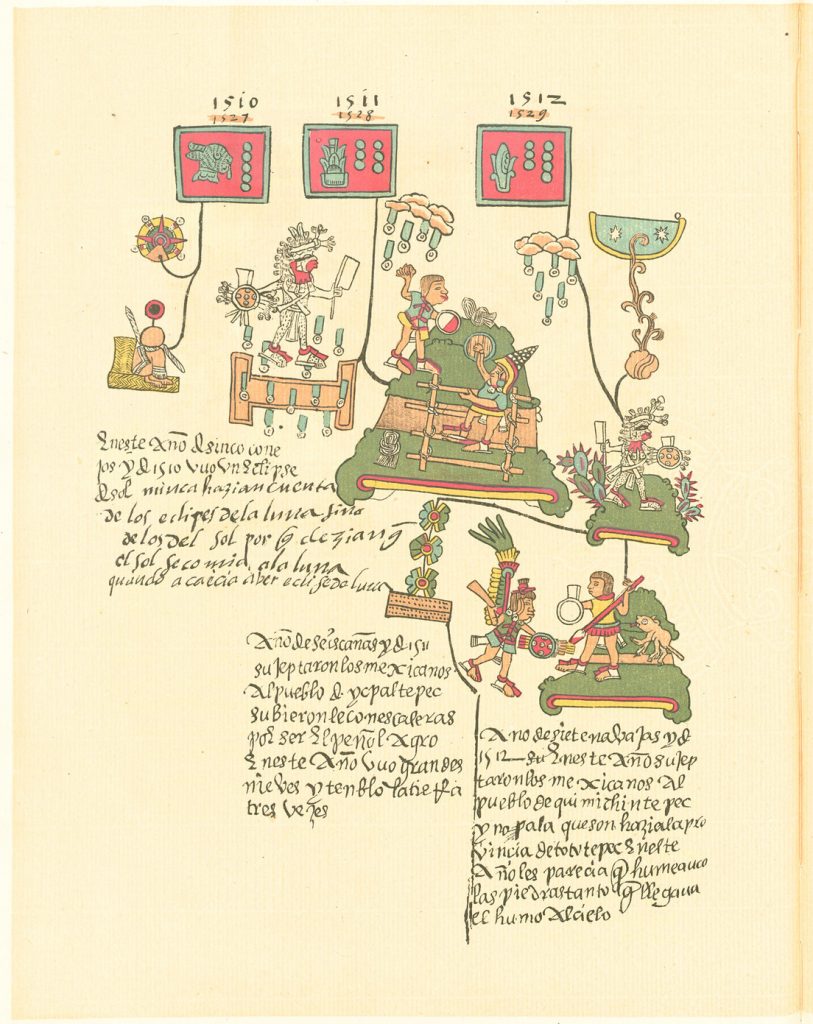 1510
1527
1511
1528
1512
1529
Eneste Año de sinco cone
jos y de 1510 vuo vn Eclipse
de sol nunca hazian cuenta
de los eclipses de la luna sino
de los del sol por q̃ dezian q̃
el sol se comia a la luna
quando acaecia aber eclipse de luna
Año de seis cañas y de 1511
sujeptaron los mexicanos
Al pueblo de ycpaltepec
subieronle con escaleras
por ser El peñol Agro
Eneste Año vuo grandes
nieves y tenblo la tierra
tres vezes
Ano de siete nabajas y de
1512 Eneste Año sujep
taron los mexicanos Al
pueblo de quimichintepec
y nopala que son hazia la pro
vincia de tototepec Eneste
Año les parecia q̃ humeauã
las piedras tanto q̃ llegaua
el humo Al cielo